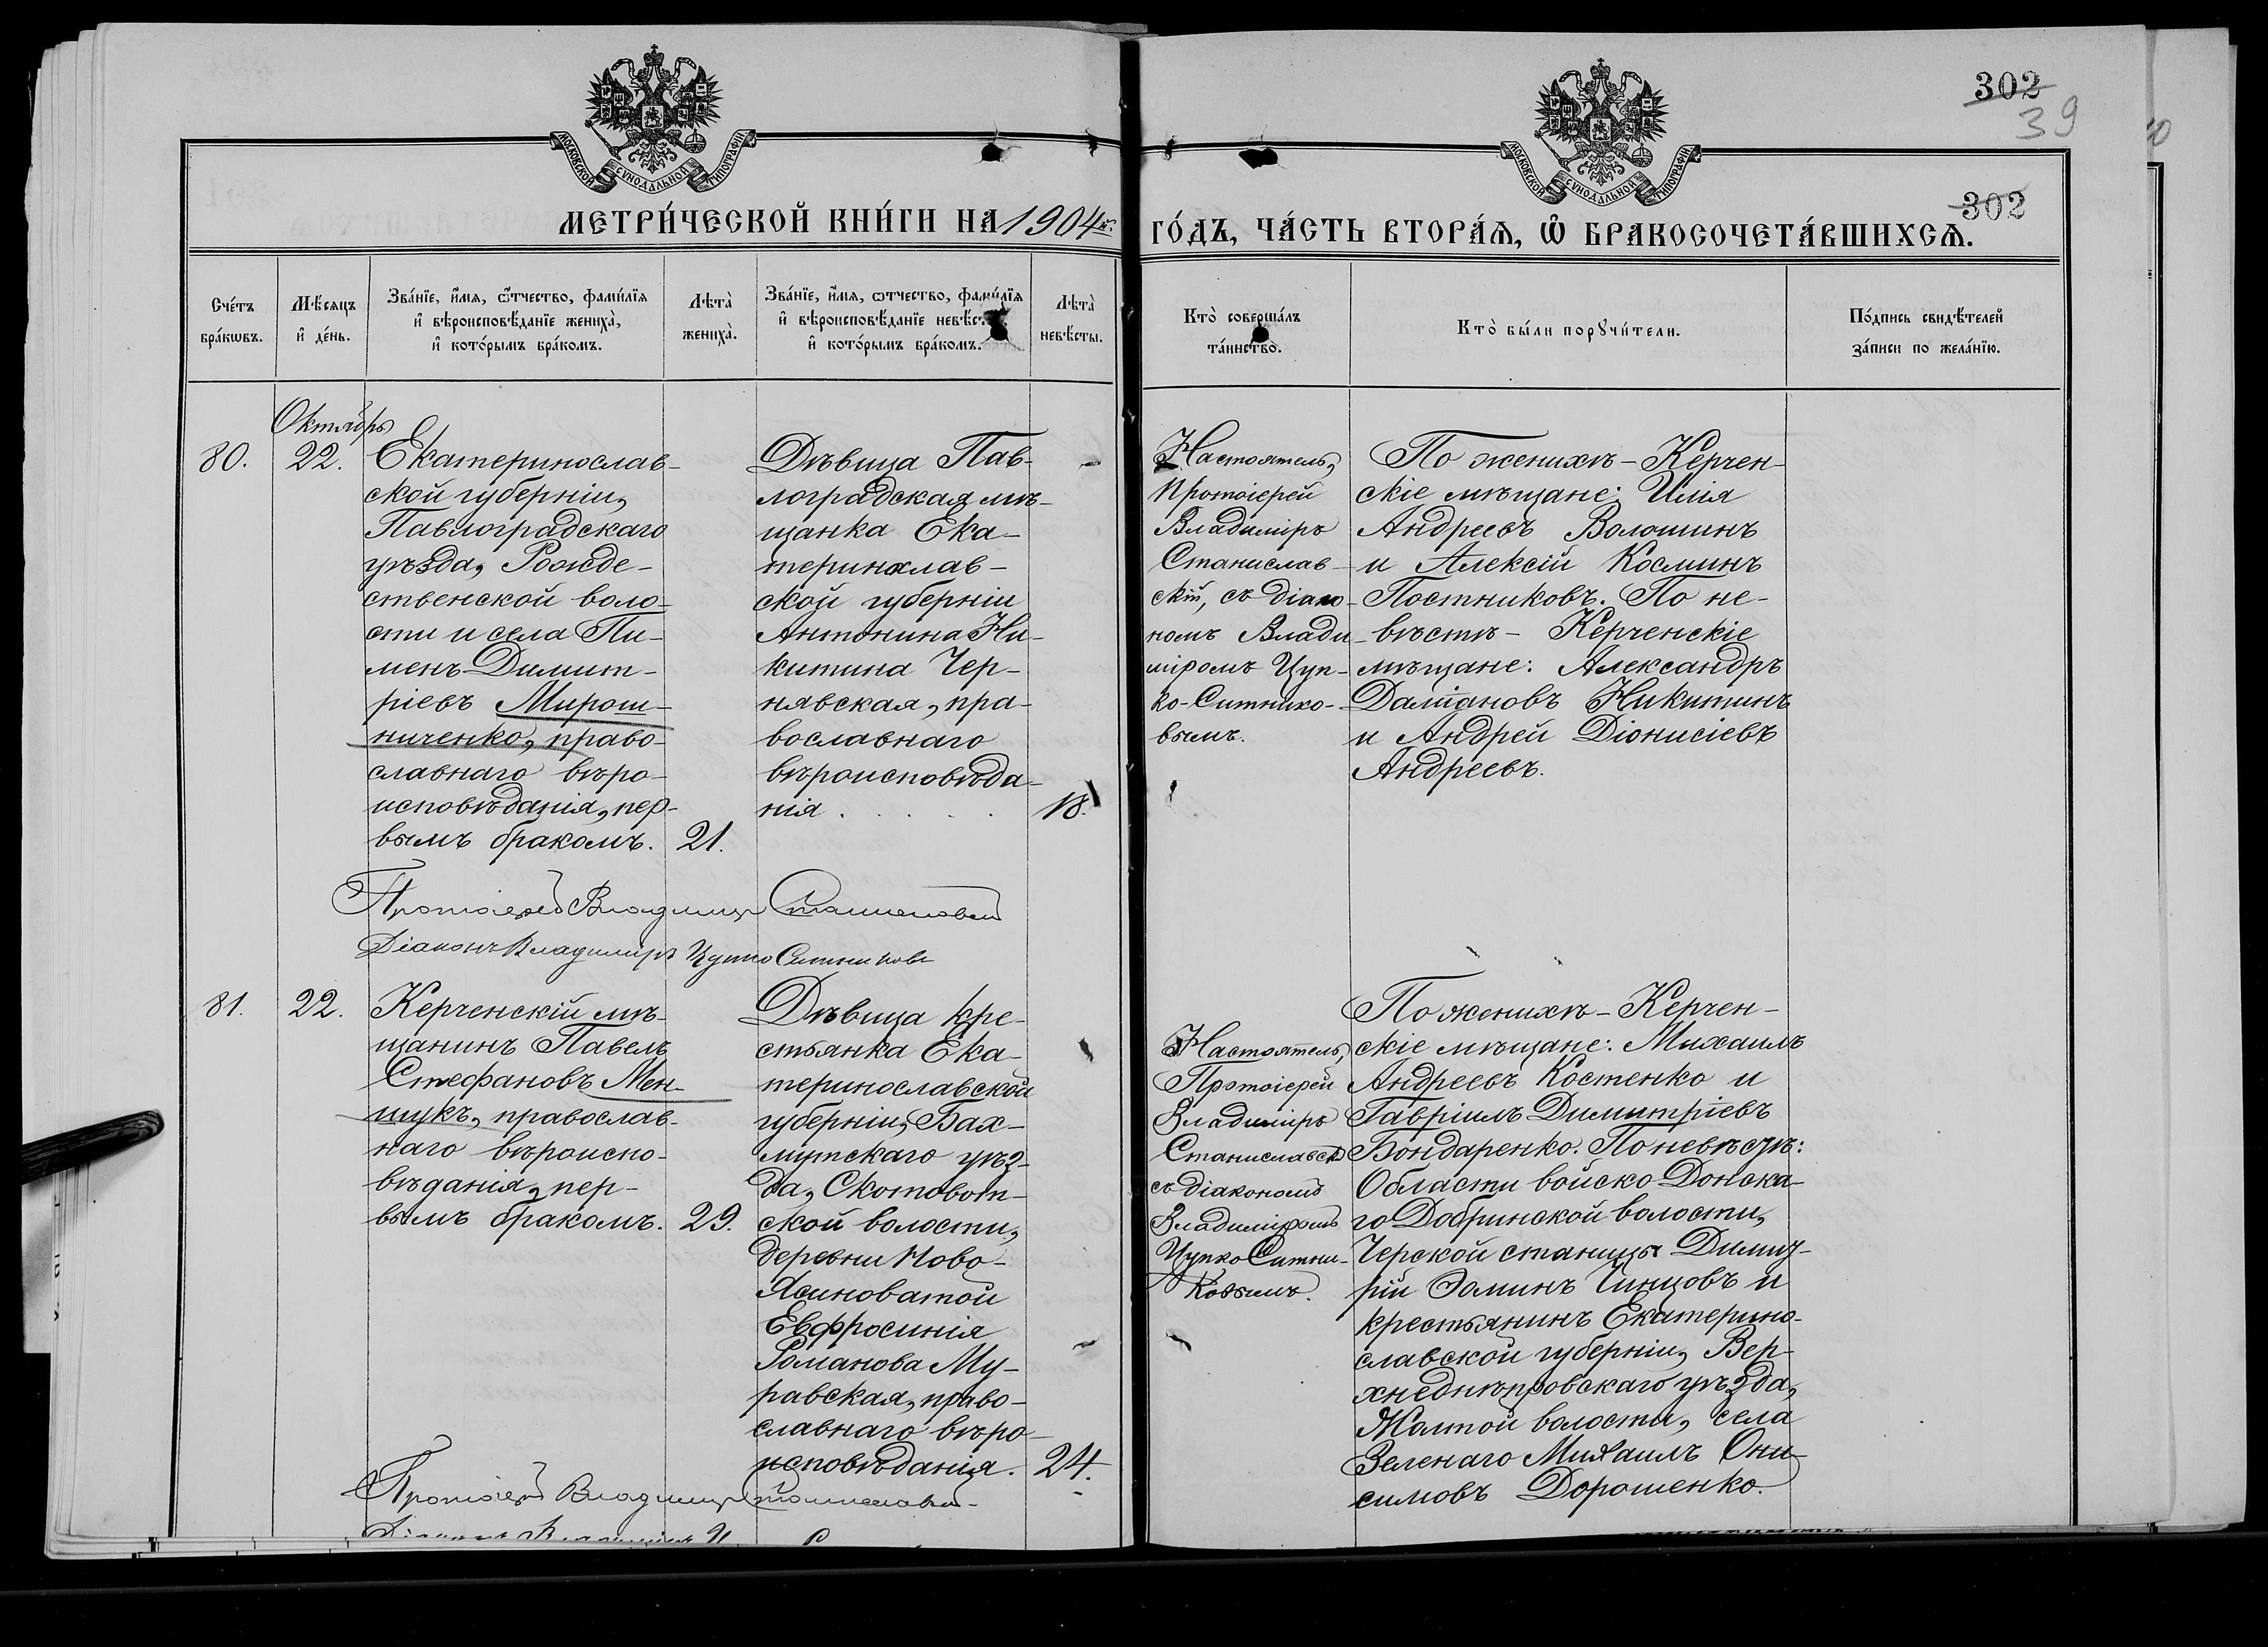 302
39
302
МОСКОВСКОЙ СѴНОДАЛЬНОЙ ТИПОГРАФІИ
МОСКОВСКОЙ СѴНОДАЛЬНОЙ ТИПОГРАФІИ
МЕТРИ́ЧЕСКОЙ КНИ́ГИ НА 1904й.
ГО́ДЪ, ЧА́СТЬ ВТОРА́Ѧ, Ѽ БРАКОСОЧЕТА́ВШИХСѦ.
Сче́тъ
бра́кѡвъ.
Мѣ́сяцъ
и҆ де́нь.
Зва́нїе, и҆́мѧ, ѻ҆́тчество, фами́лїѧ
и҆ вѣроисповѣ́данїе жениха̀,
и҆ кото́рымъ бра́комъ.
Лѣта̀
жениха̀.
Зва́нїе, и҆́мѧ, ѻтчество, фами́лїѧ
и҆ вѣроисповѣ́данїе невѣ́с
и҆ кото́рымъ бра́комъ.
Лѣта̀
невѣ́сты.
Кто̀ соверша́лъ
та́инство.
Кто̀ бы́ли порꙋчи́тели.
По́дпись свидѣ́телей
за́писи по жела́нїю.
Октябрь
80.
22.
Екатеринослав-
ской губерніи,
Павлоградскаго
уѣзда, Рожде-
ственской воло-
сти и села Пи-
менъ Димит-
ріевъ Мирош-
ниченко, право-
славнаго вѣро-
исповѣданія, пер-
вымъ бракомъ.
21.
Дѣвица Пав-
лоградская мѣ-
щанка Ека-
теринослав-
ской губерніи
Антонина Ни-
китина Чер-
нявская, пра-
вославнаго
вѣроисповѣда-
нія . . . . .
18.
Настоятель,
Протоіерей
Владиміръ
Станислав-
скій, съ діако-
номъ Влади-
міромъ Цуп-
ко-Ситнико-
вымъ.
По женихѣ - Керчен-
скіе мѣщане: Илія
Андреевъ Волошинъ
и Алексій Косминъ
Постниковъ. По не-
вѣстѣ - Керченскіе
мѣщане: Александръ
Даміановъ Никитинъ
и Андрей Діонисіевъ
Андреевъ.
Протоіерей Владиміръ Станиславскій
Діаконъ Владиміръ Цупко Ситниковъ
81.
22.
Керченскій мѣ-
щанинъ Павелъ
Стефановъ Мен-
шукъ, православ-
наго вѣроиспо-
вѣданія, пер-
вымъ бракомъ.
29.
Дѣвица кре-
стьянка Ека-
теринославской
губерніи, Бах-
мутскаго уѣз-
да, Скотоват-
ской волости,
деревни Ново-
Ясиноватой
Евфросинія
Романова Му-
равская, право-
славнаго вѣро-
исповѣданія.
24.
Настоятель,
Протоіерей
Владиміръ
Станиславскій
съ діакономъ
Владиміромъ
Цупко Ситни-
ковымъ.
По женихѣ - Керчен-
скіе мѣщане: Михаилъ
Андреевъ Костенко и
Гавріилъ Димитріевъ
Бондаренко. По невѣстѣ:
Области войско Донска-
го Добринской волости,
Черской станицы Димит-
рій Ѳоминъ и
крестьянинъ Екатерино-
славской губерніи, Вер-
хнеднѣпровскаго уѣзда,
Жолтой волости, села
Зеленаго Михаилъ Они-
симовъ Дорошенко.
Протоіерей Владиміръ Станиславскій